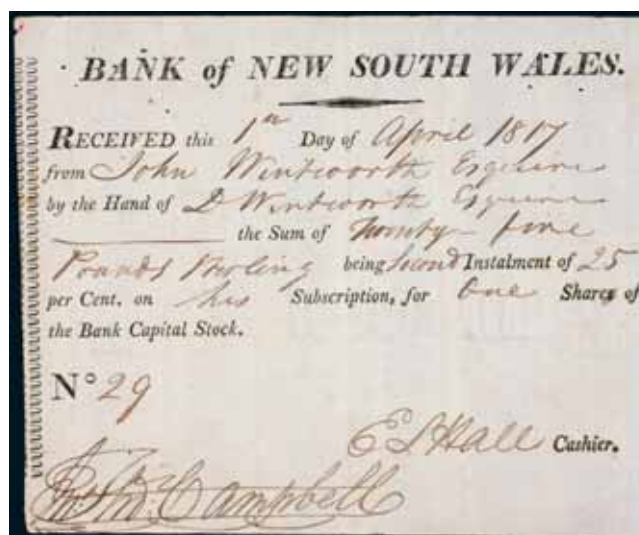 BANK of NEW SOUTH WALES.
RECEIVED this 1st Day of April 1817
from John Wentworth Esquire
by the Hand of D Wentworth Esquire
the Sum of Twenty five
Pounds Sterling being Second Instalment of 25
per Cent. on his Subscription, for One Shares of
the Bank Capital Stock.
No 29
E S Hall Cashier.
Campbell